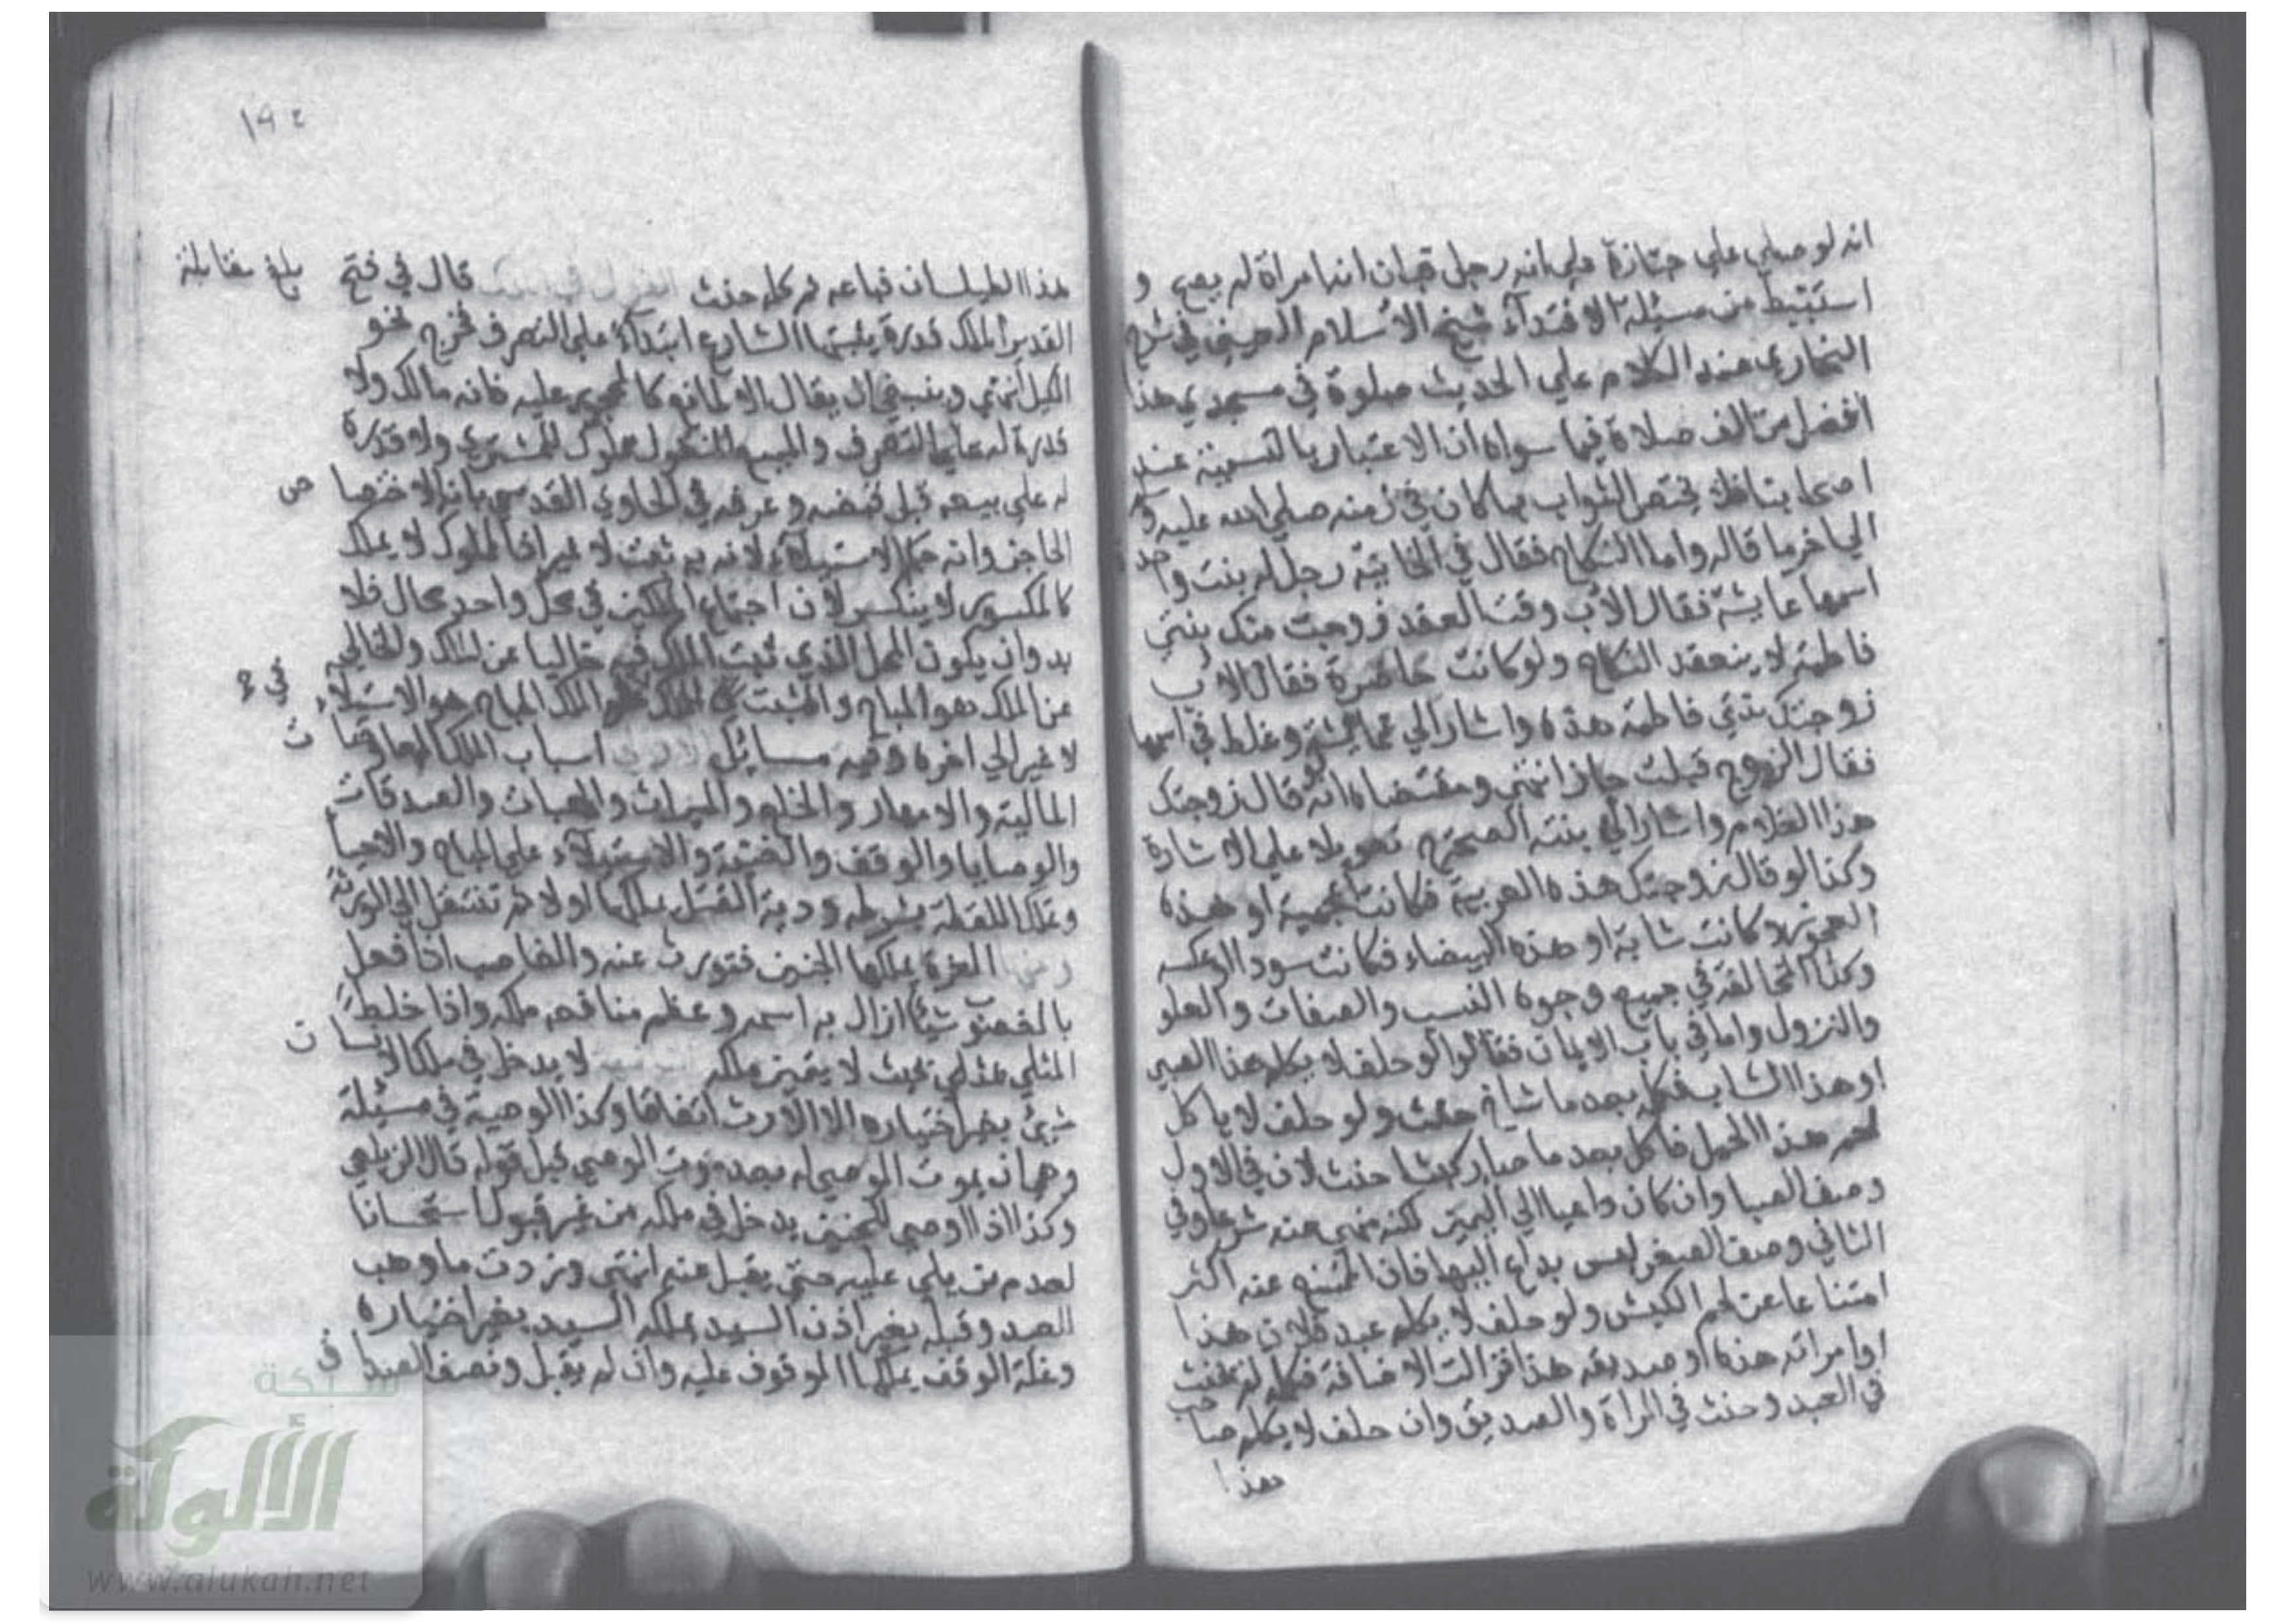 انه لو صلي علي جنازة علي انه رجل فبان انها امراة لم يصح و
استنبط من مسئلة الاقتداء شيخ الاسلام العيني في شرح
البخاري عند الكلام علي الحديث صلوة في مسجدي هذا
افضل من الف صلاة فيما سواه ان الاعتبار بالتسمية عند
اصحابنا فلا يختص الثواب بما كان في زمنه صلي الله عليه و
الي اخر ما قاله واما النكاح فقال في الخانية رجل له بنت واحد
اسمها عايشة فقال الاب وقت العقد زوجت منك بنتي
فاطمة لا ينعقد النكاح ولو كانت حاضرة فقال الاب
زوجتك بنتي فاطمة هذه واشار الي عايشة وغلط في اسمها
فقال الزوج قبلت جاز انتهي ومقتضاه انه لو قال زوجتك
هذا الغلام واشار الي بنته الصحة تعويلا علي الاشارة
وكذا لو قال زوجتك هذه العربية فكانت عجمية او هذه
العجوز فكانت شابة او هذه البيضاء فكانت سودا او عكسه
وكذا المخالفة في جميع وجوه النسب والصفات والعلو
والنزول واما في باب الايمان فقالوا لو حلف لا يكلم هذا الصبي
او هذا الشاب فكلم بعد ما شاخ حنث ولو حلف لا ياكل
لحم هذا الحمل فاكل بعد ما صار كبشا حنث لان في الاول
وصف الصبا وان كان داعيا الي اليمين لكنه منهي عنه شرعا وفي
الثاني وصف الصغر ليس بداع اليها فان الممتنع عنه اكثر
امتناعا عن لحم الكبش ولو حلف لا يكلم عبد فلان هذا
او امراته هذه او صديقه هذا فزالت الاضافة فكلمه لم يحنث
في العبد وحنث في المراة والصديق وان حلف لا يكلم صاحب
هذا
١٩٤
هذا الطيلسان فباعه ثم كلمه حنث القول في الملك قال في فتح
بلغ مقابلة
القدير الملك قدرة يثبتها الشارع ابتداء علي التصرف فخرج نحو
الكيل انتهي وينبغي ان يقال الا لمانع كالمحجور عليه فانه مالك ولا
قدرة له علي التصرف والمبيع المنقول مملوك للمشتري ولا قدرة
له علي بيعه قبل قبضه وعرفه في الحاوي القدسي بانه الاختصاص
الحاجز وانه حكم الاستيلاء لانه به ثبت لا غير اذ المملوك لا يملك
كالمكسور لا ينكسر لان اجتماع الملكين في محل واحد محال فلا
بد وان يكون المحل الذي ثبت الملك فيه خاليا عن الملك والخالي
عن الملك هو المباح والمثبت للملك في الملك المباح هو الاستيلاء
لا غير الي اخره وفيه مسائل الاولي اسباب الملك المعاوضات
المالية والامهار والخلع والميراث والهبات والصدقات
والوصايا والوقف والغنيمة والاستيلاء علي المباح والاحيا
وتملك اللقطة بشرطه ودية القتيل يملكها اولا ثم تنتقل الي الورثة
ومنها الغرة يملكها الجنين فتورث عنه والغاصب اذا فعل
بالمغصوب شيئا ازال به اسمه وعظم منافعه ملكه واذا خلط
المثلي بمثلي بحيث لا يتميز ملكه لا يدخل في ملك الانسان
شيئ بغير اختياره الا الارث اتفاقا وكذا الوصية في مسئلة
وهي ان يموت الموصي له بعد موت الموصي قبل قبوله قال الزيلعي
وكذا اذا اوصي للجنين يدخل في ملكه من غير قبول استحسانا
لعدم من يلي عليه حتي يقبل عنه انتهي وزدت ما وهب
للعبد وقبله بغير اذن السيد يملكه السيد بغير اختياره
وغلة الوقف يملكها الموقوف عليه وان لم يقبل ونصف الصداق
شبكة
الألوكة
www.alukah.net